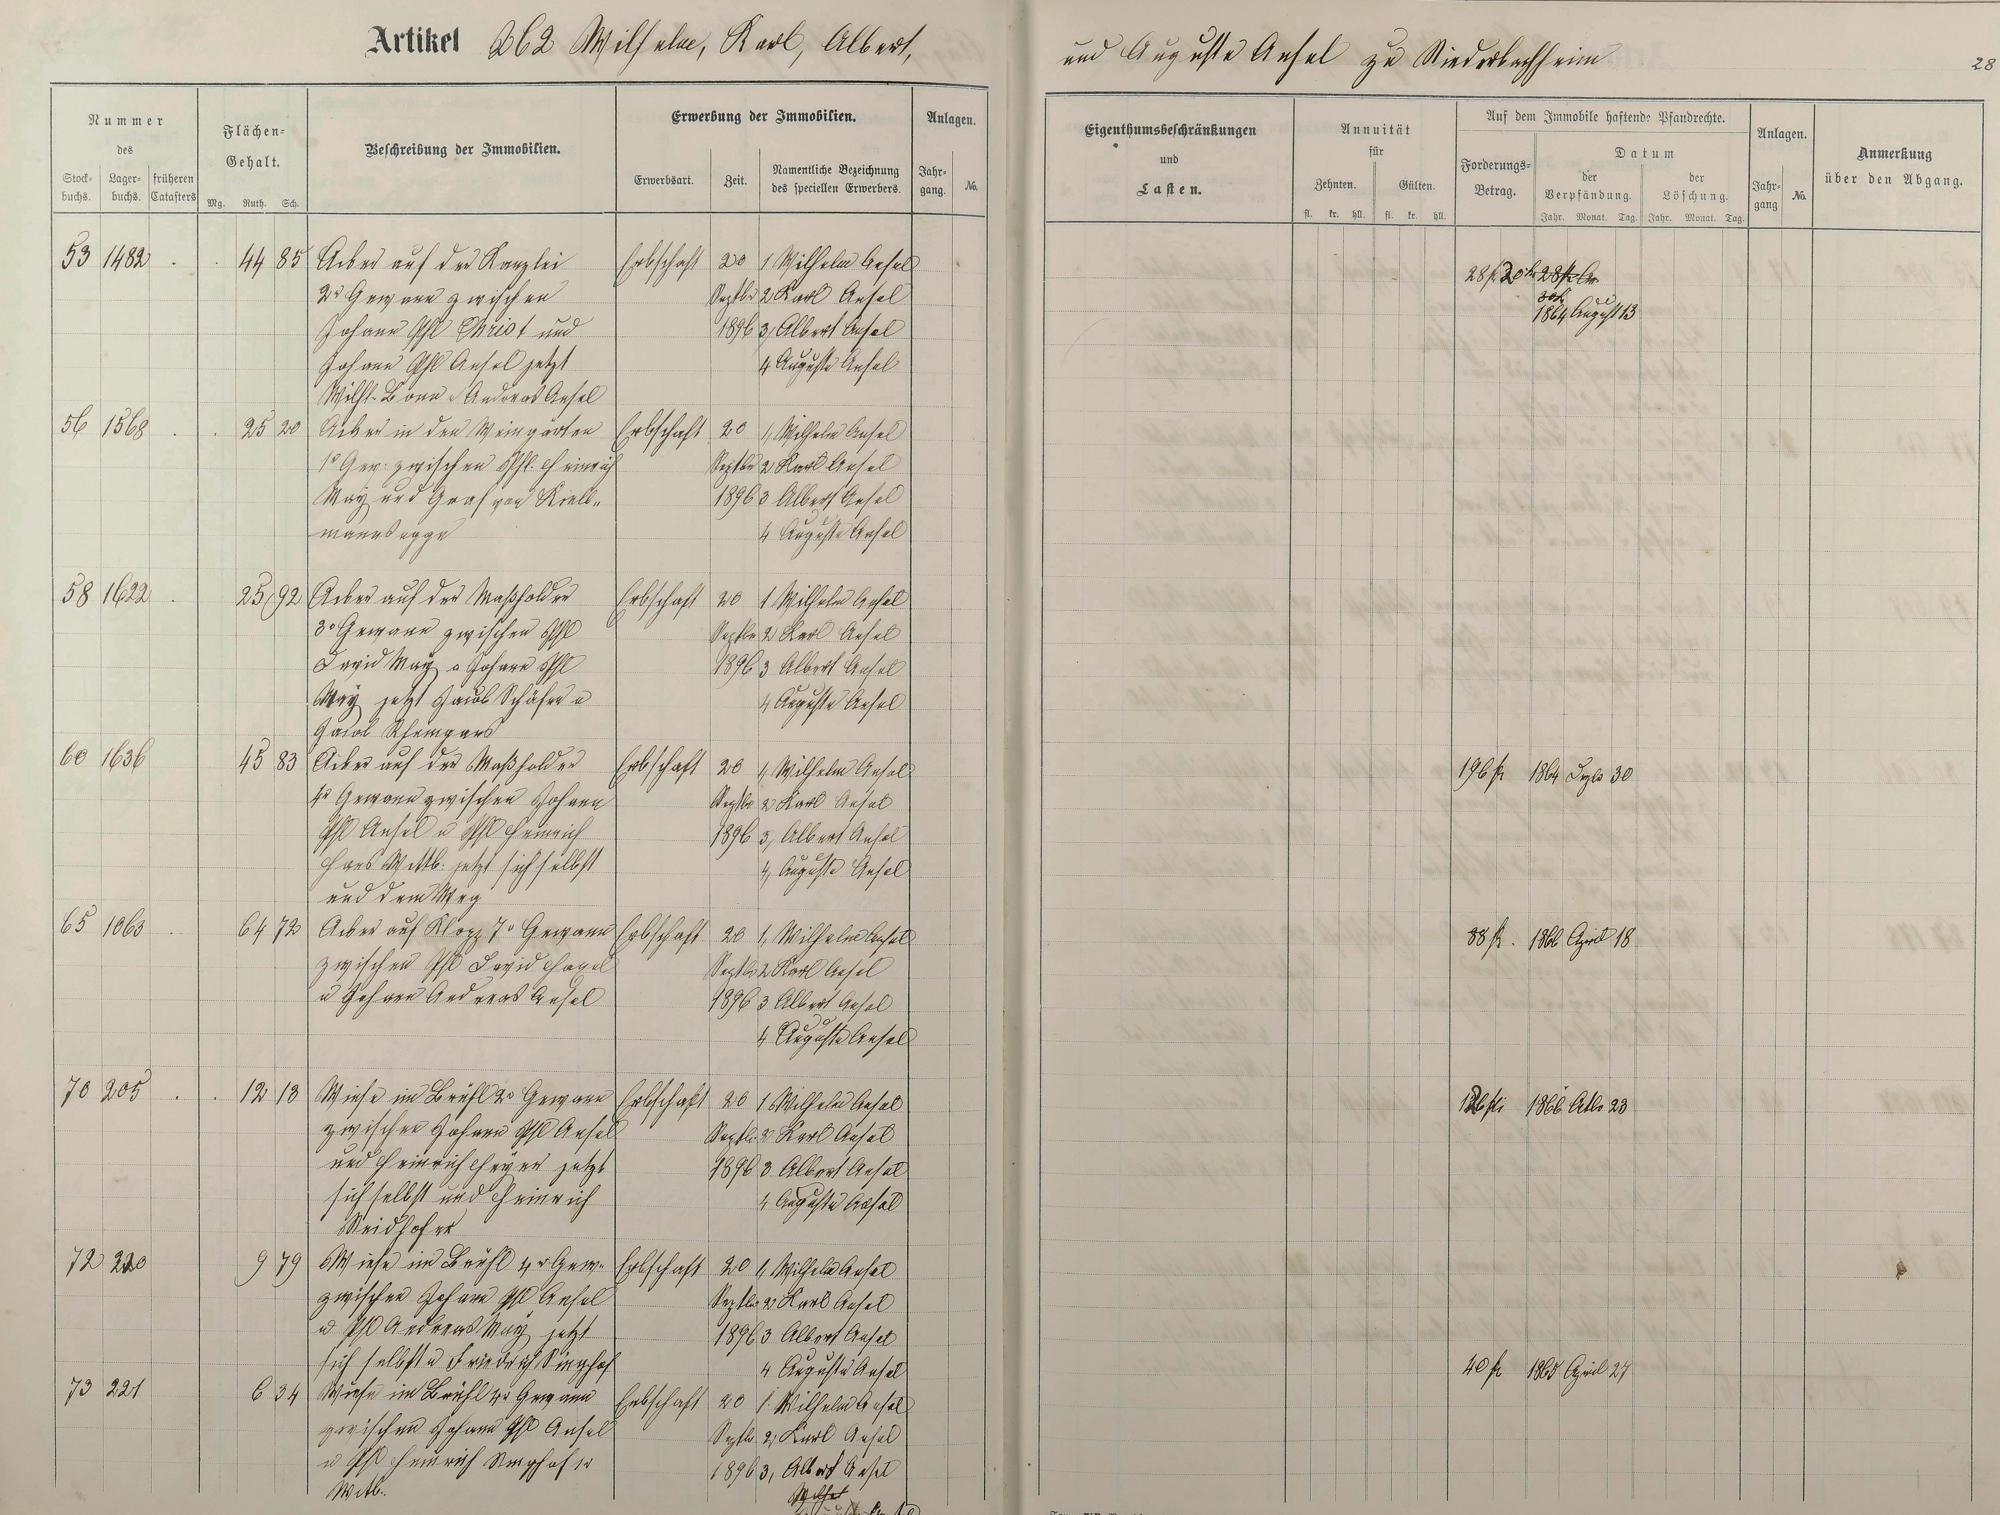 Artikel 262 Wilhelm, Karl, Albert,
und Auguste Ansel zu Niederbachheim
28
Nummer
des
Stock-
buchs.
Lager-
buchs.
früheren
Catasters
Flächen-
Gehalt.
Mg. Ruth. Sch.
Beschreibung der Immobilien.
Erwerbung der Immobilien.
Erwerbsart.
Zeit.
Namentliche Bezeichnung
des speciellen Erwerbers.
Anlagen.
Jahr-
gang.
No.
Eigenthumsbeschränkungen
und
Lasten.
Annuität
für
Zehnten.
Gülten.
fl. kr. hll. fl. kr. hll.
Auf dem Immobile haftende Pfandrechte.
Forderungs-
Betrag.
Datum
der
Verpfändung.
der
Löschung.
Jahr. Monat. Tag. Jahr. Monat. Tag.
Anlagen.
Jahr-
gang
No.
Anmerkung
über den Abgang.
53 1482 . . 44 85 Acker auf der Kanzlei Erbschaft 20 1 Wilhelm Ansel
2r Gewann zwischen Septbr 2 Karl Ansel
Johann Phl Christ und 1896 3, Albert Ansel
Johann Phl Ansel jetzt 4 Auguste Ansel
Wilh. Bonn u Andreas Ansel
1864 August 13
56 1568 . . 25 20 Acker in den Weingärten Erbschaft 20 1, Wilhelm Ansel
1r Gew: zwischen Phl. Heinrich Septbr 2 Karl Ansel
May und Graf von Kiel- 1896 3 Albert Ansel
mannsegge 4 Auguste Ansel
58 1622 . 25 92 Acker auf der Maßholder Erbschaft 20 1 Wilhelm Ansel
3r Gewann zwischen Phl Septbr 2 Karl Ansel
David May u Johann Phl 1896 3 Albert Ansel
May jetzt Jacob Schäfer u 4 Auguste Ansel
Jacob
60 1636 45 83 Acker auf der Maßholder Erbschaft 20 1, Wilhelm Ansel
4r Gewann zwischen Johann Septbr 2 Karl Ansel
Phl Ansel u Phl Heinrich 1896 3, Albert Ansel
Wittb: jetzt sich selbst 4, Auguste Ansel
und dem Weg
196 fl 1864 30
65 1063 . 64 72 Acker auf Klopp 7r Gewann Erbschaft 20 1, Wilhelm Ansel
zwischen Phl David Septbr 2 Karl Ansel
u Johann Andreas Ansel 1896 3 Albert Ansel
4 Auguste Ansel
88 fl . 1866 April 18
70 205 . . 12 13 Wiese im Brühl 2r Gewann Erbschaft 20 1 Wilhelm Ansel
zwischen Johann Phl Ansel Septbr. 2 Karl Ansel
und Heinrich jetzt 1896 3 Albert Ansel
sich selbst und Heinrich 4 Auguste Ansel
1866 23
72 220 9 79 Wiese im Brühl 4r Gew. Erbschaft 20 1, Wilhelm Ansel
zwischen Johann Phl Ansel Septbr 2 Karl Ansel
u Phl Andreas May jetzt 1896 3 Albert Ansel
sich selbst u Friedrich Singhof 4 Auguste Ansel
40 fl 1865 April 27
73 221 6 34 Wiese im Brühl 4r Gewann Erbschaft 20 1. Wilhelm Ansel
zwischen Johann Phl Ansel Septbr 2, Karl Ansel
u Phl Heinrich Singhof 1896 3, Albert Ansel
Witb.